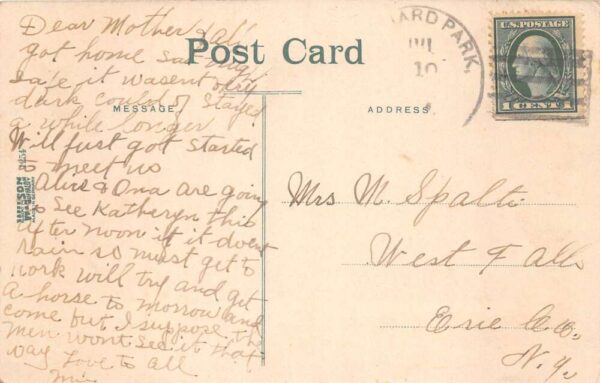 Dear Mother & all
got home Sat night
safe it wasent very
dark could of stayed
a while longer
Will just got started
to meet us
& Ona are going
to See Katheryn this
after noon if it doent
rain so must get to
work will try and get
a horse to morrow and
come but I suppose the
men wont see it that
way Love to all
Post Card
MESSAGE
ADDRESS
ARD PARK,
JUL
10
U.S. POSTAGE
1 CENT 1
Mrs M. Spalti
West Falls
Erie Co.
N.Y.
WILSON